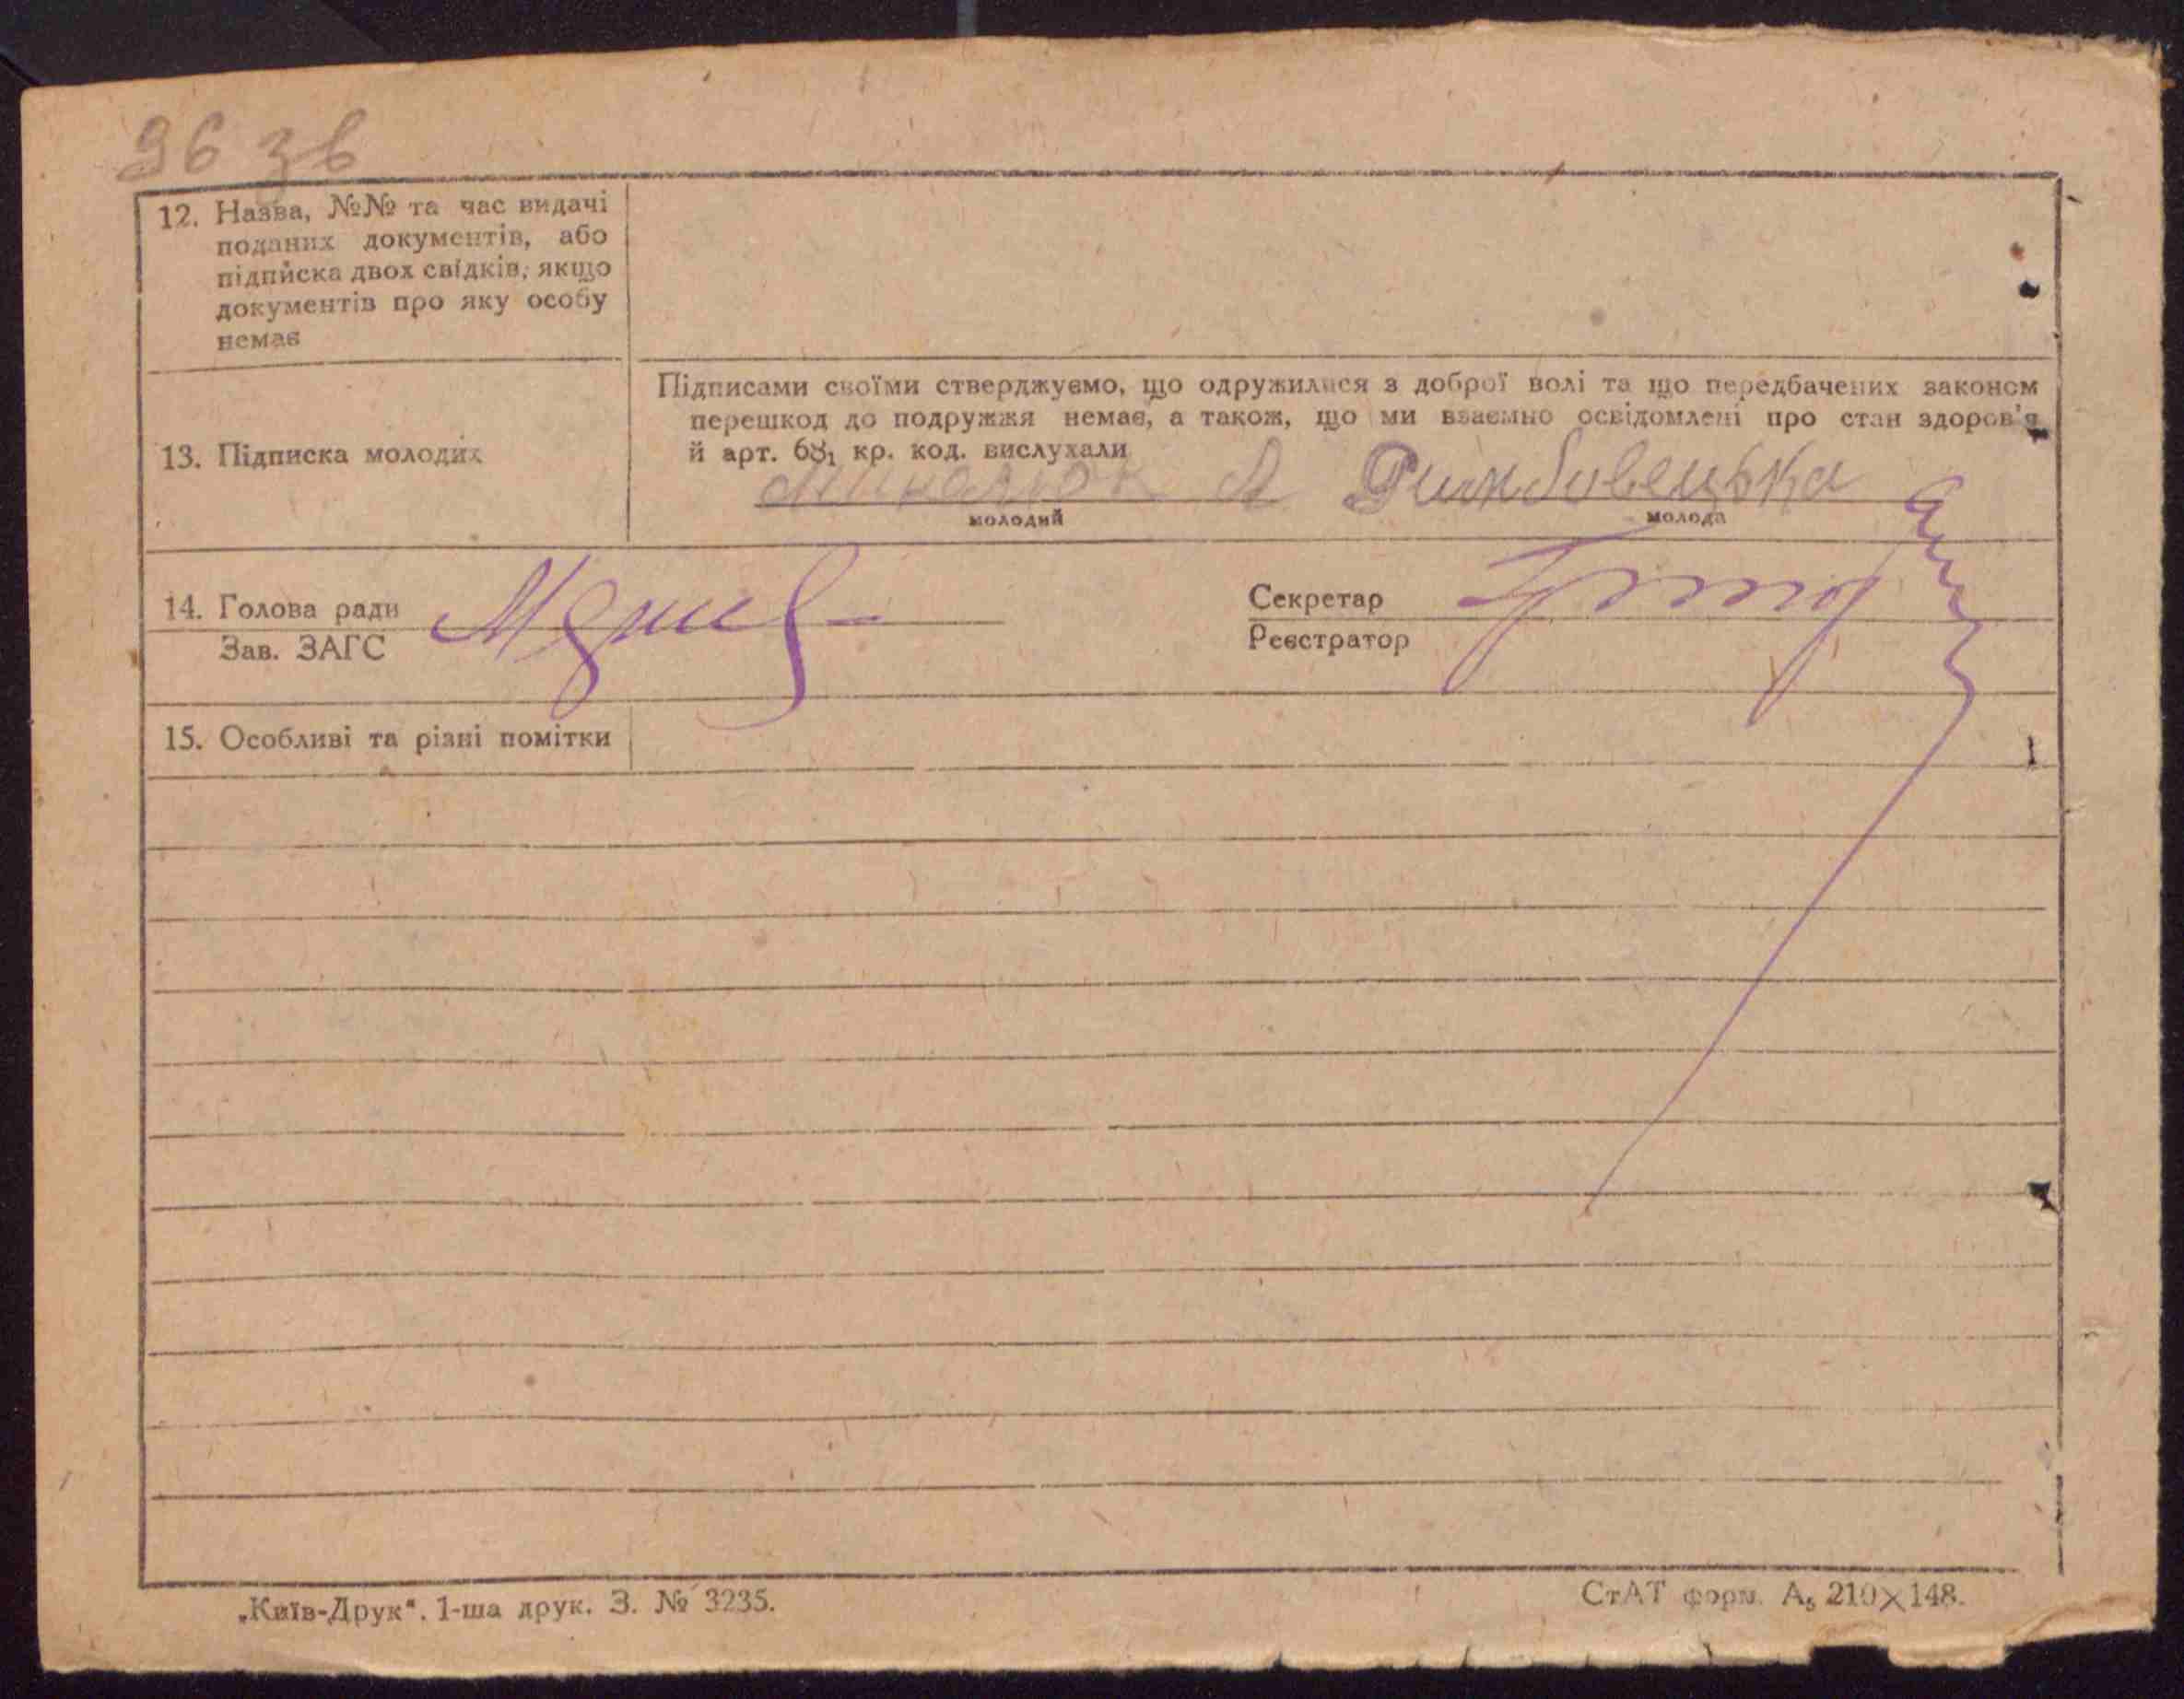 96 зв
12. Назва, №№ та час видачі
поданих документів, або
підписка двох свідків, якщо
документів про яку особу
немає
Підписами своїми стверджуємо, що одружилися з доброї волі та що передбачених законом
перешкод до подружжя немає, а також, що ми взаємно освідомлені про стан здоров'я
13. Підписка молодих
й арт. 68₁ кр. код. вислухали
А
молодий молода
14. Голова ради
Зав. ЗАГС
Секретар
Реєстратор
15. Особливі та різні помітки
„Київ-Друк“. 1-ша друк. З. № 3235.
СтАТ форм. А₅ 210×148.